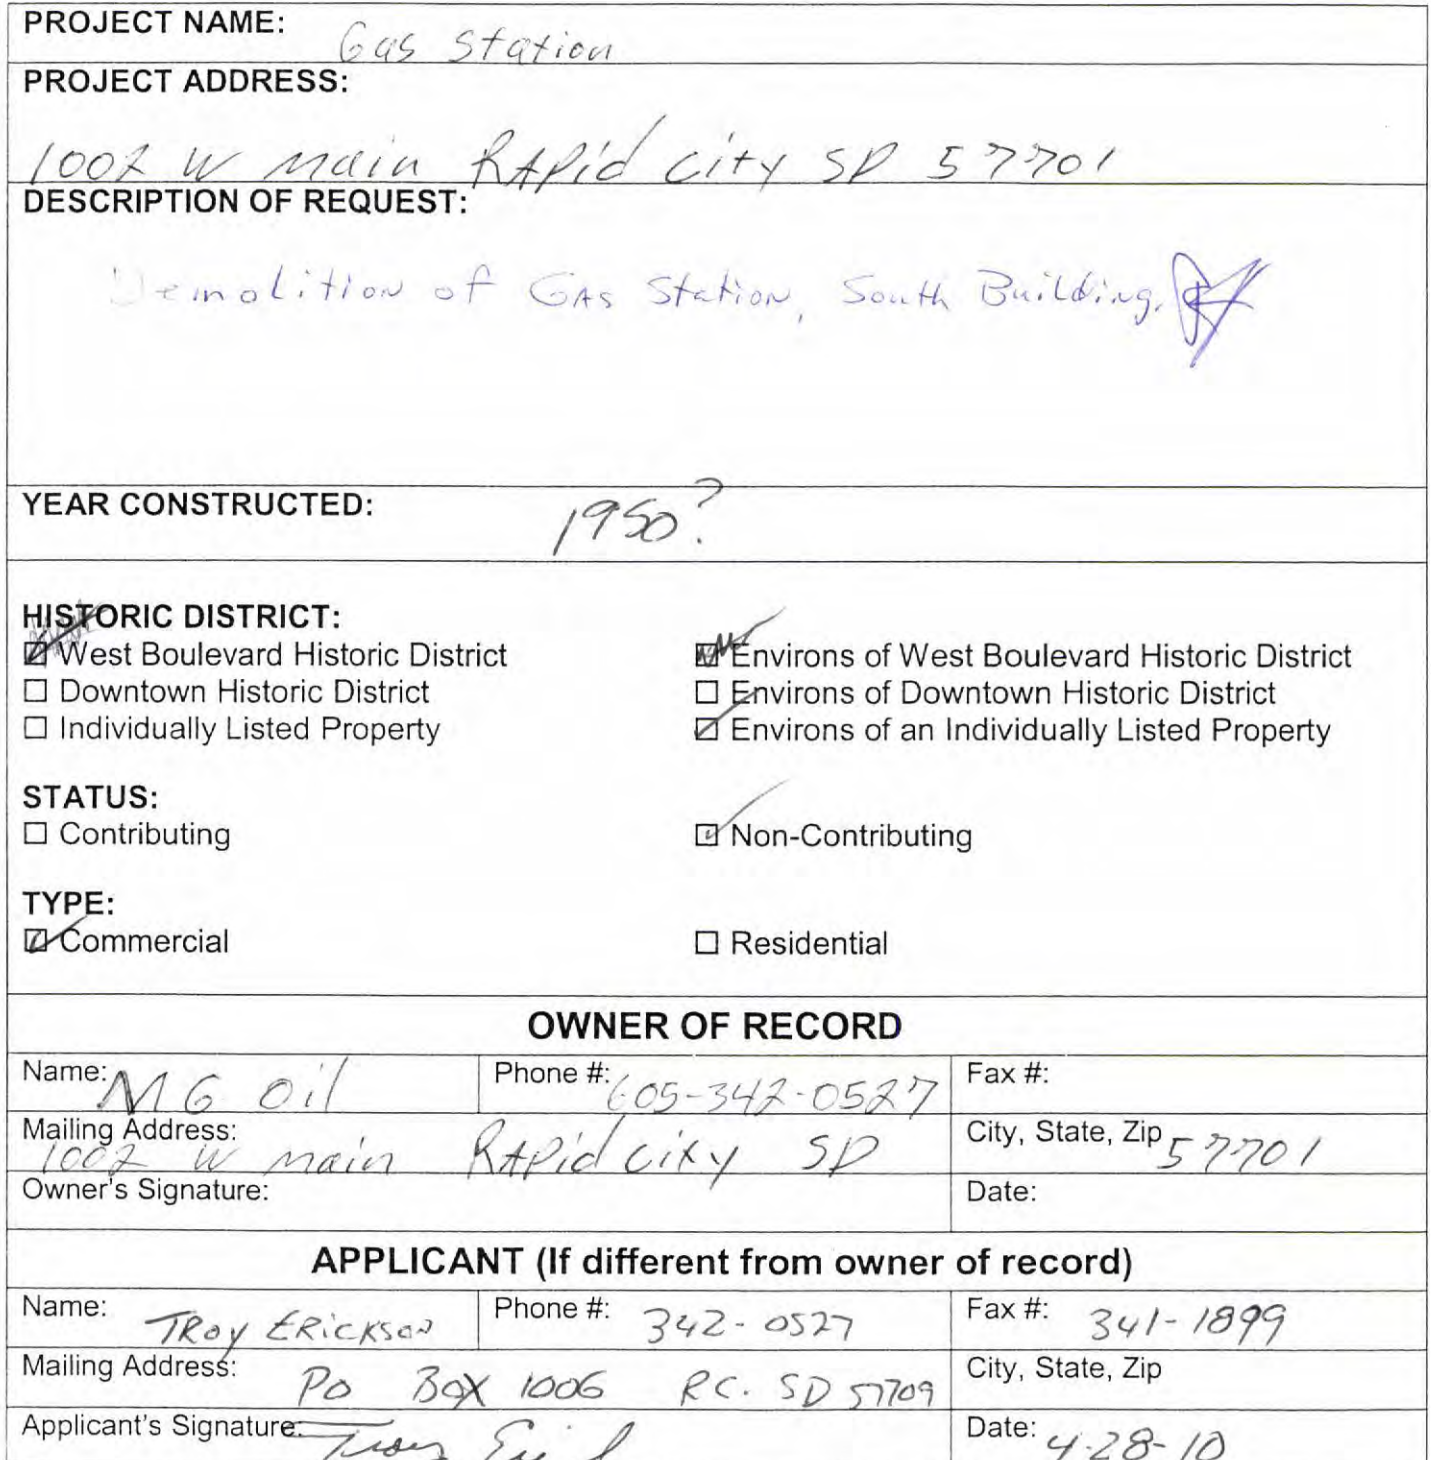 PROJECT NAME: Gas Station
PROJECT ADDRESS:
1002 W Main RAPid City SD 57701
DESCRIPTION OF REQUEST:
Demolition of GAs Station, South Building.
YEAR CONSTRUCTED: 1950?
HISTORIC DISTRICT:
☑ West Boulevard Historic District ☑ Environs of West Boulevard Historic District
☐ Downtown Historic District ☐ Environs of Downtown Historic District
☐ Individually Listed Property ☑ Environs of an Individually Listed Property
STATUS:
☐ Contributing ☑ Non-Contributing
TYPE:
☑ Commercial ☐ Residential
OWNER OF RECORD
Name: MG Oil Phone #: 605-342-0527 Fax #:
Mailing Address: 1002 W Main RAPid City SD City, State, Zip 57701
Owner's Signature: Date:
APPLICANT (If different from owner of record)
Name: TRoy ERicKson Phone #: 342-0527 Fax #: 341-1899
Mailing Address: Po Box 1006 RC. SD 57709 City, State, Zip
Applicant's Signature: Date: 4-28-10